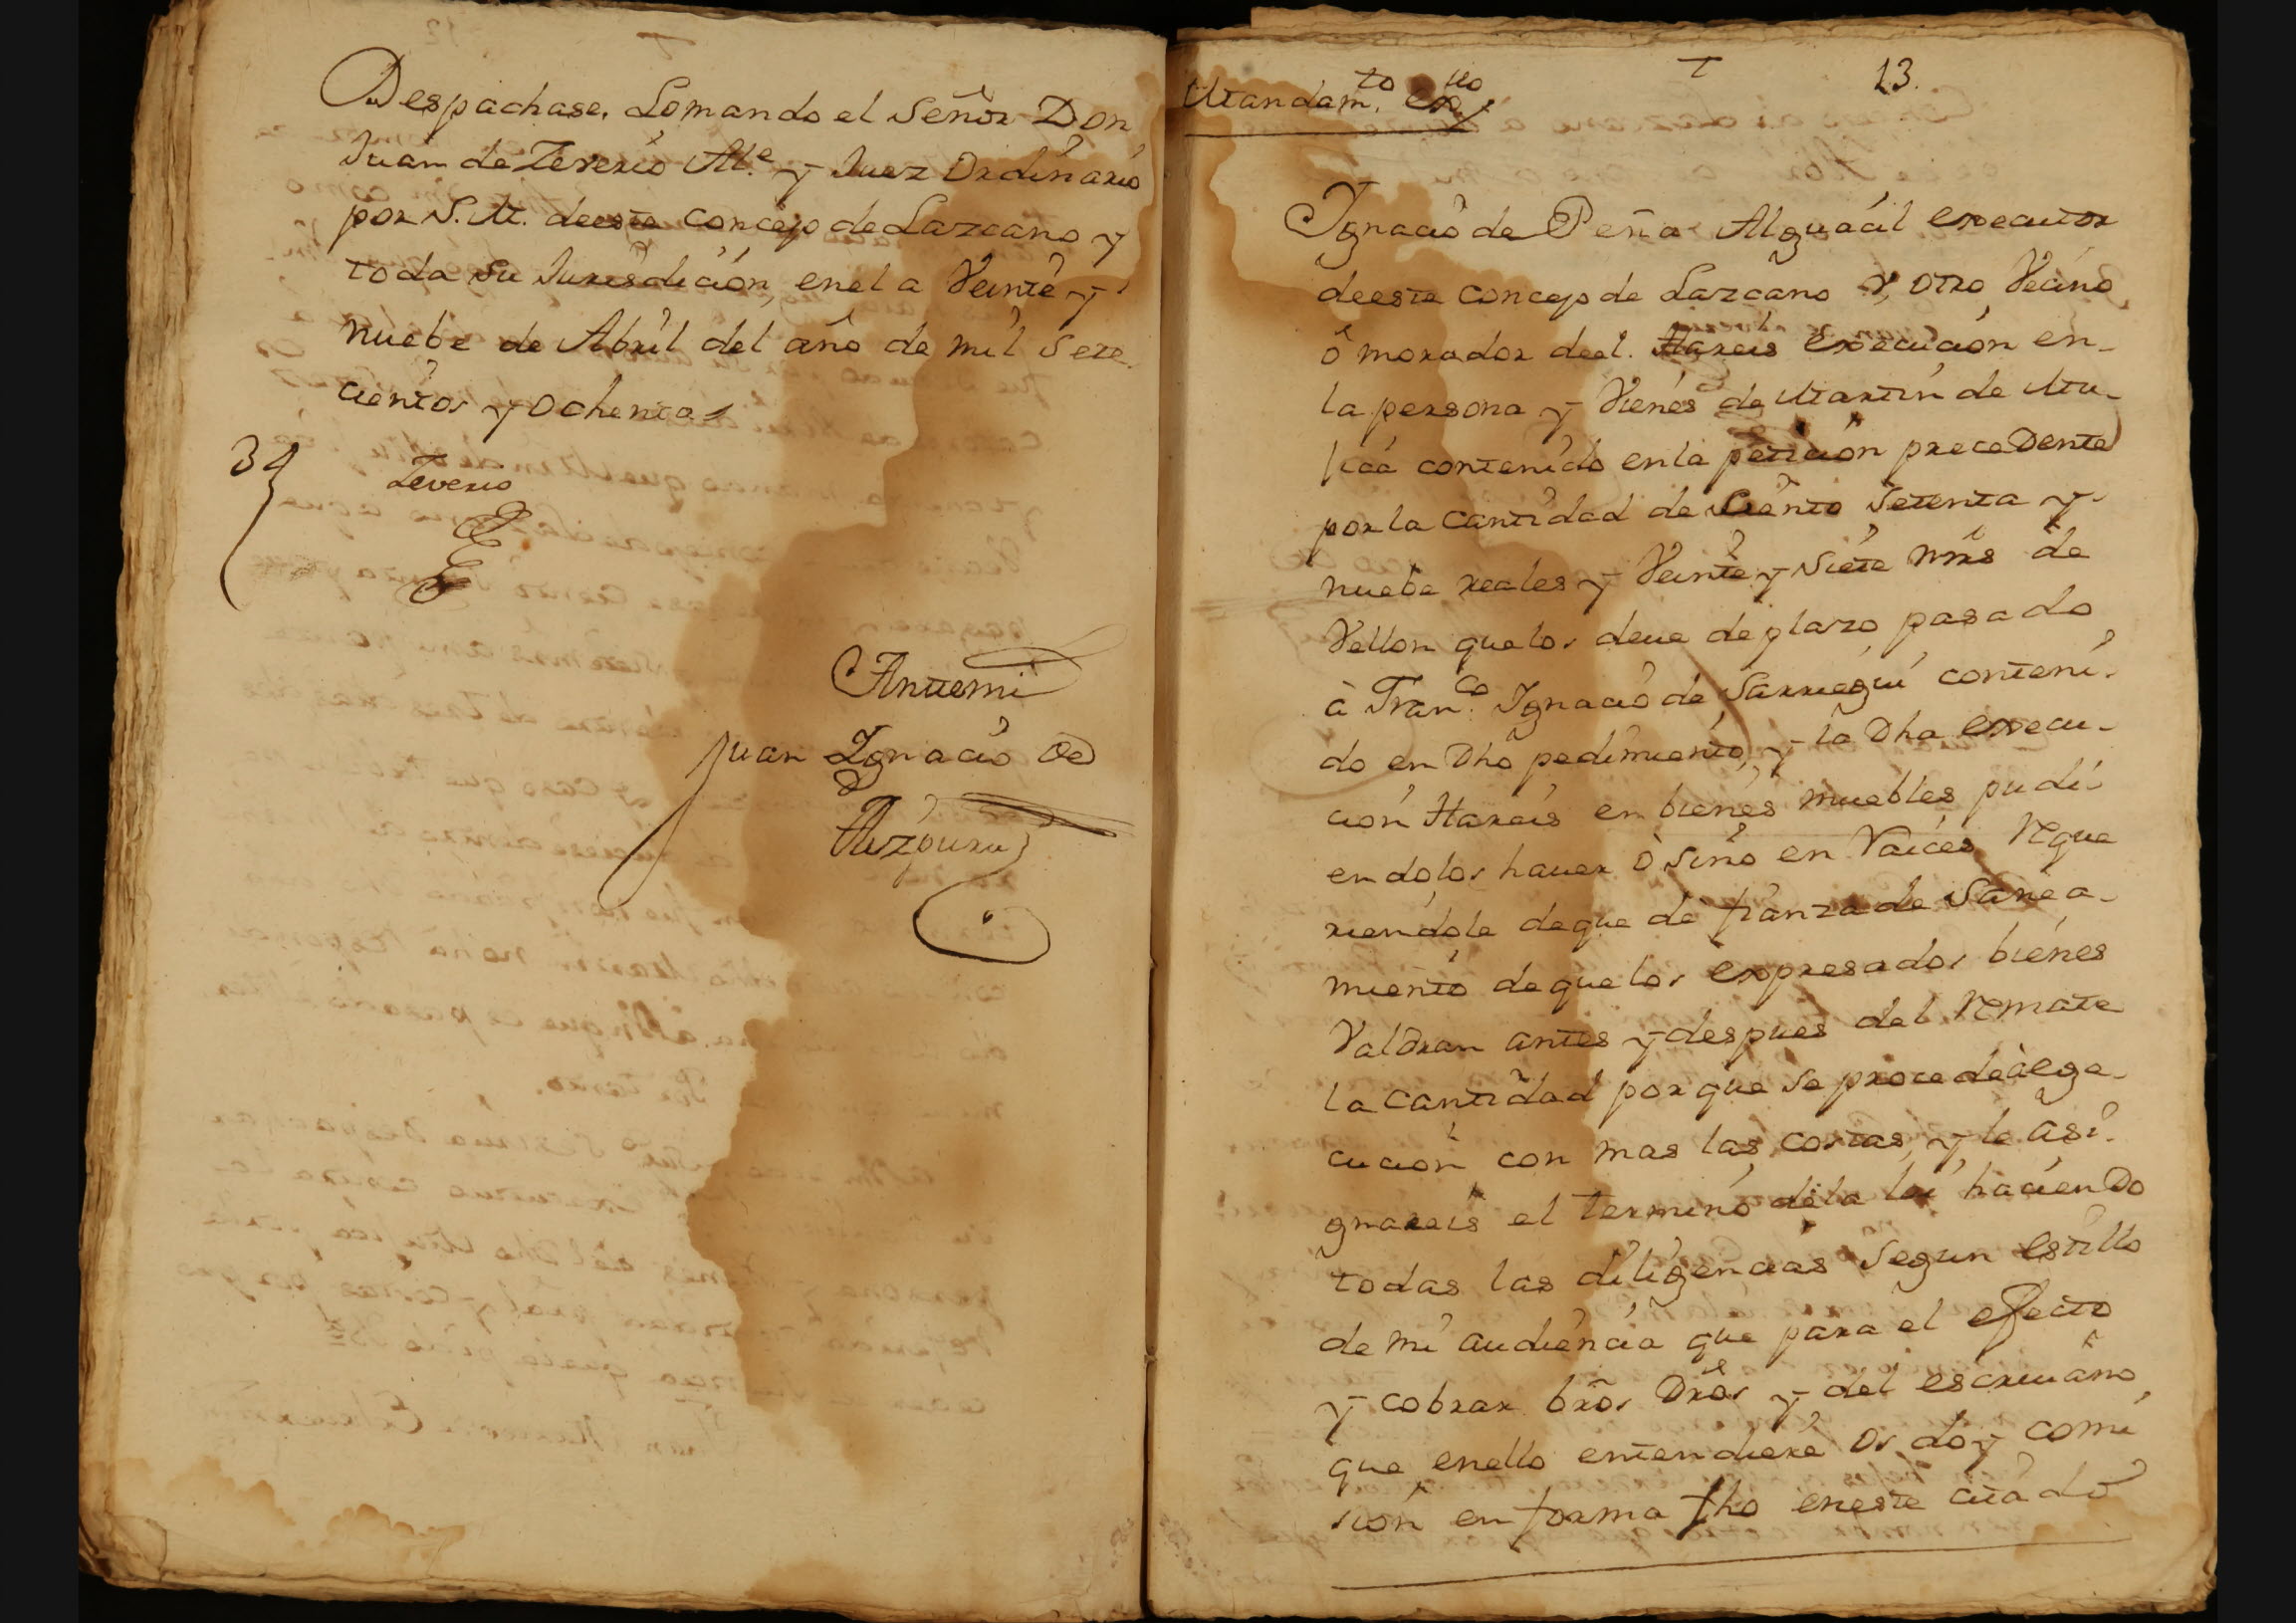 Despachase. Lomando el Señor Don
Juan de Zeverio Al.e y Juez Ordinario
por S. M. deeste concejo de Lazcano y
toda su Jurisdicion, enel a Veinte y
nuebe de Abril del año de mil sete
cientos y ochenta
34
Zeverio
Antemi
Juan Ignacio de
Aizpuru
Mandam.to ex.uo
13.
Ignacio de Peña Alguacil executor
deeste concejo de Lazcano Y, otro Vecino
ô morador deel. Hareis execucion en
la persona y Vienes de Martin de Mu-
jica contenido enla peticion precedente
por la cantidad de Ciento setenta y
nuebe reales y Veinte y siete mrs de
Vellon quelos deve de plazo pasado
à Fran.co Ignacio de Sarriegui conteni-
do en Dho pedimiento, y la Dha execu-
cion Hareis en bienes muebles pudi-
endolos haver ò sino en Raices Reque
riendole deque dè fianza de Sanea-
miento deque los expresados bienes
Valdran antes y despues del Remate
la cantidad por que se procede à ege-
cucion con mas las costas, y le asi-
gnareis el termino dela lei haciendo
todas las diligencias segun estillo
de mi audiencia que para el efecto
y cobrar brõs Drõs y del escrivano,
que enello entendiere os doy comi
sion en forma fho eneste citado